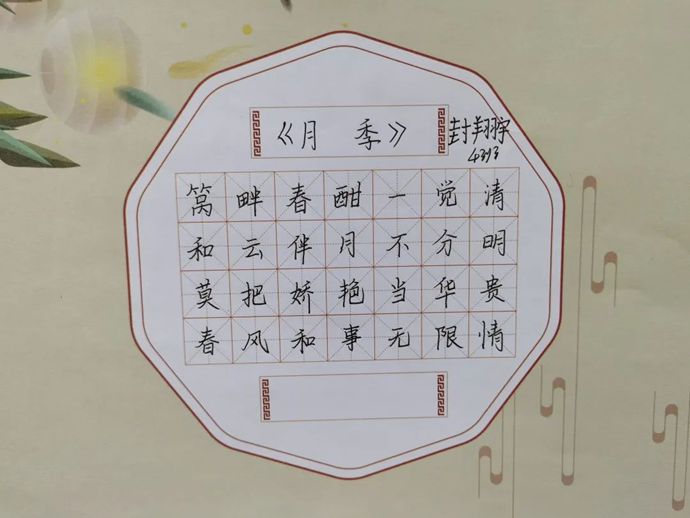 《月 季》
封翔宇
4313
窝畔春酣一觉清
和云伴月不分明
莫把娇艳当华贵
春风和事无限情